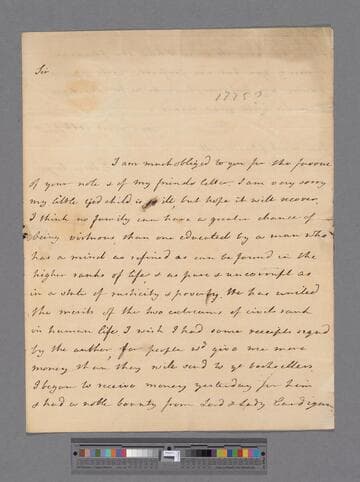 Sir
1775?
I am much obliged to you for the favour
of your note & of my friends letter. I am very sorry
my little God child is ill, but hope it will recover.
I think no family can have a greater chance of
being virtuous than one educated by a man who
has a mind as refined as can be found in the
higher ranks of life, & as pure & uncorrupt as
in a state of rusticity & poverty. He has united
the merits of the two extremes of civil rank
in human life. I wish I had some receipts signed
by the author, for people wd give me more
money than they will send to ye booksellers
I began to receive money yesterday for him
& had a noble bounty from Lord & Lady Cardigan